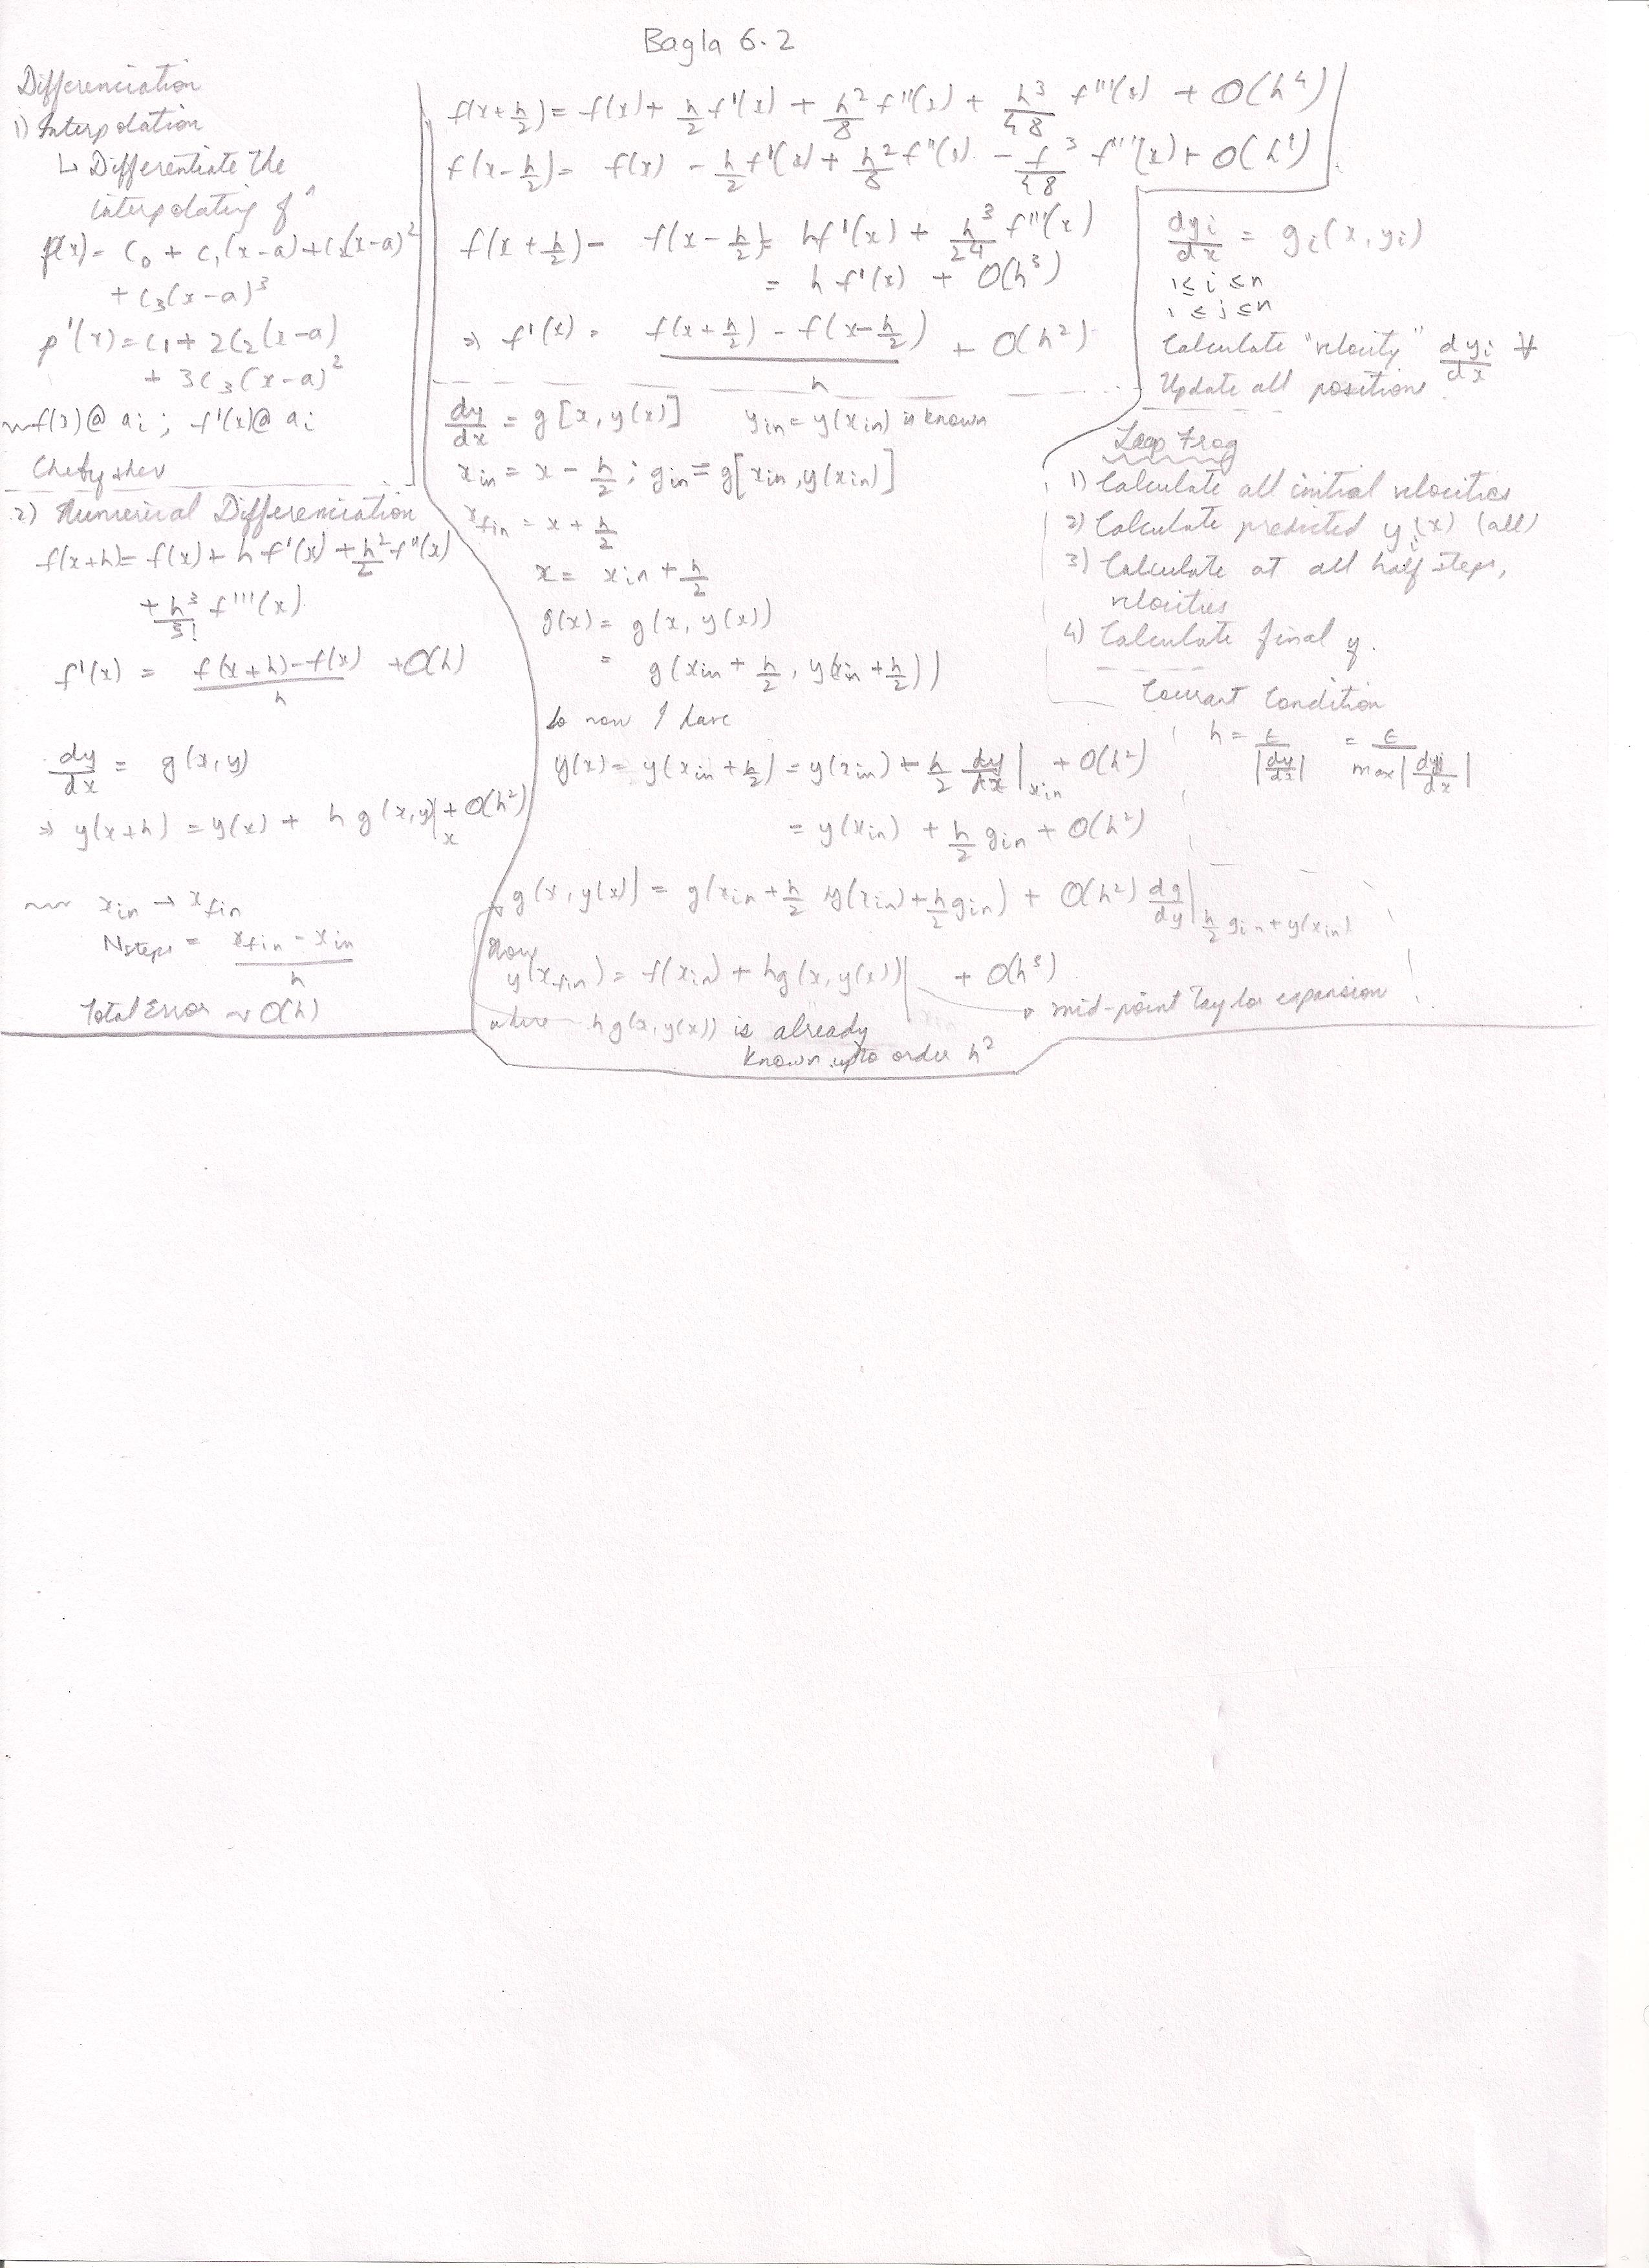 Bagla 6.2
Differenciation
1) Interpolation
↳ Differentiate the
interpolating fⁿ
p(x) = c₀ + c₁(x-a) + c₂(x-a)²
+ c₃(x-a)³
p'(x) = c₁ + 2c₂(x-a)
+ 3c₃(x-a)²
f(x) @ aᵢ ; f'(x) @ aᵢ
Chebyshev
2) Numerical Differenciation
f(x+h) = f(x) + h f'(x) + h²/2 f''(x)
+ h³/3! f'''(x)
f'(x) = (f(x+h) - f(x))/h + O(h)
dy/dx = g(x,y)
⇒ y(x+h) = y(x) + h g(x,y)|ₓ + O(h²)
x_in → x_fin
Nsteps = (x_fin - x_in)/h
Total Error ~ O(h)
f(x+h/2) = f(x) + h/2 f'(x) + h²/8 f''(x) + h³/48 f'''(x) + O(h⁴)
f(x-h/2) = f(x) - h/2 f'(x) + h²/8 f''(x) - f³/48 f'''(x) + O(h')
f(x+h/2) - f(x-h/2) = hf'(x) + h³/24 f'''(x)
= h f'(x) + O(h³)
⇒ f'(x) = (f(x+h/2) - f(x-h/2))/h + O(h²)
dy/dx = g[x, y(x)] y_in = y(x_in) is known
x_in = x - h/2 ; g_in = g[x_in, y(x_in)]
x_fin = x + h/2
x = x_in + h/2
g(x) = g(x, y(x))
= g(x_in + h/2, y(x_in + h/2))
So now I have
y(x) = y(x_in + h/2) = y(x_in) + h/2 dy/dx|x_in + O(h²)
= y(x_in) + h/2 g_in + O(h²)
g(x, y(x)) = g(x_in + h/2 y(x_in) + h/2 g_in) + O(h²) dg/dy| h/2 g_in + y(x_in)
Now
y(x_fin) = f(x_in) + hg(x, y(x))| + O(h³)
→ mid-point Taylor expansion
where hg(x, y(x)) is already
known upto order h²
dyᵢ/dx = gᵢ(x, yᵢ)
1 ≤ i ≤ n
1 ≤ j ≤ n
Calculate "velocity" dyᵢ/dx ∀
Update all positions
Leap Frog
1) Calculate all initial velocities
2) Calculate predicted yᵢ(x) (all)
3) Calculate at all half steps,
velocities
4) Calculate final y.
Courant Condition
h = ε/|dy/dx| = ε/max|dyᵢ/dx|